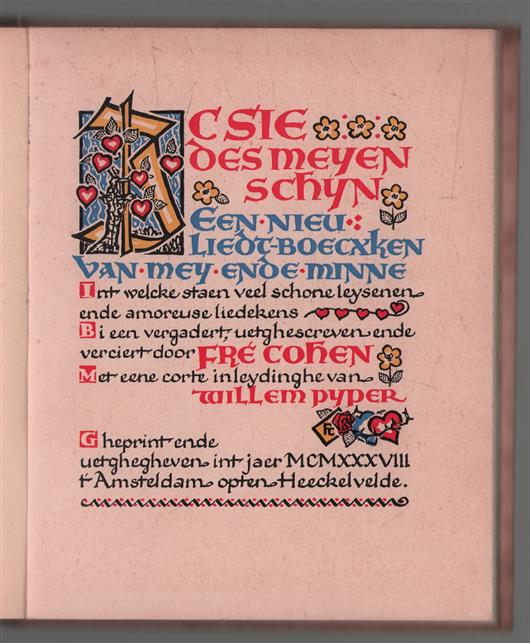 ICSIE
DES MEYEN
SCHYN
EEN·NIEU
LIEDT-BOECXKEN
VAN·MEY·ENDE·MINNE
Int welcke staen veel schone leysenen
ende amoreuse liedekens
Bi een vergadert, uetghescreven ende
verciert door FRÉ COHEN
Met eene corte inleydinghe van
WILLEM PYPER
FC
Gheprint ende
uetghegheven int jaer MCMXXXVIII
t'Amsteldam opten Heeckelvelde.